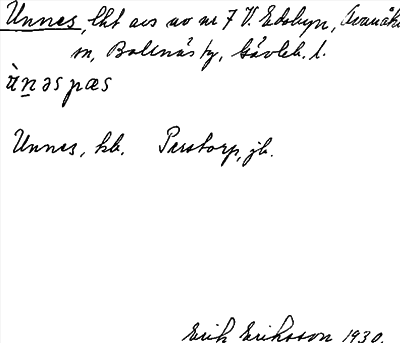 Unnes, lht avs av nr 7 V. Edsbyn, Svanåker
m, Bollnäs tg, Gävleb. l.
ù̀n̠əspæs
Unnes, kb. Perstorp, jb.
Erik Eriksson 1930.